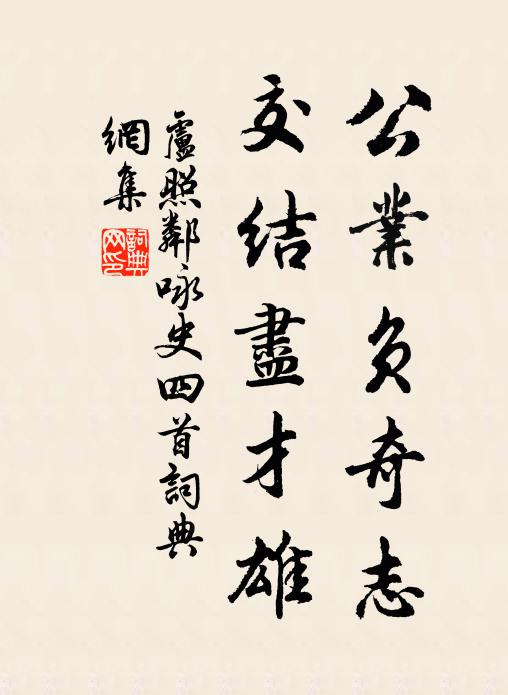 公業負奇志
交結盡才雄
盧照鄰咏史四首詞典
網集
詞典
网印